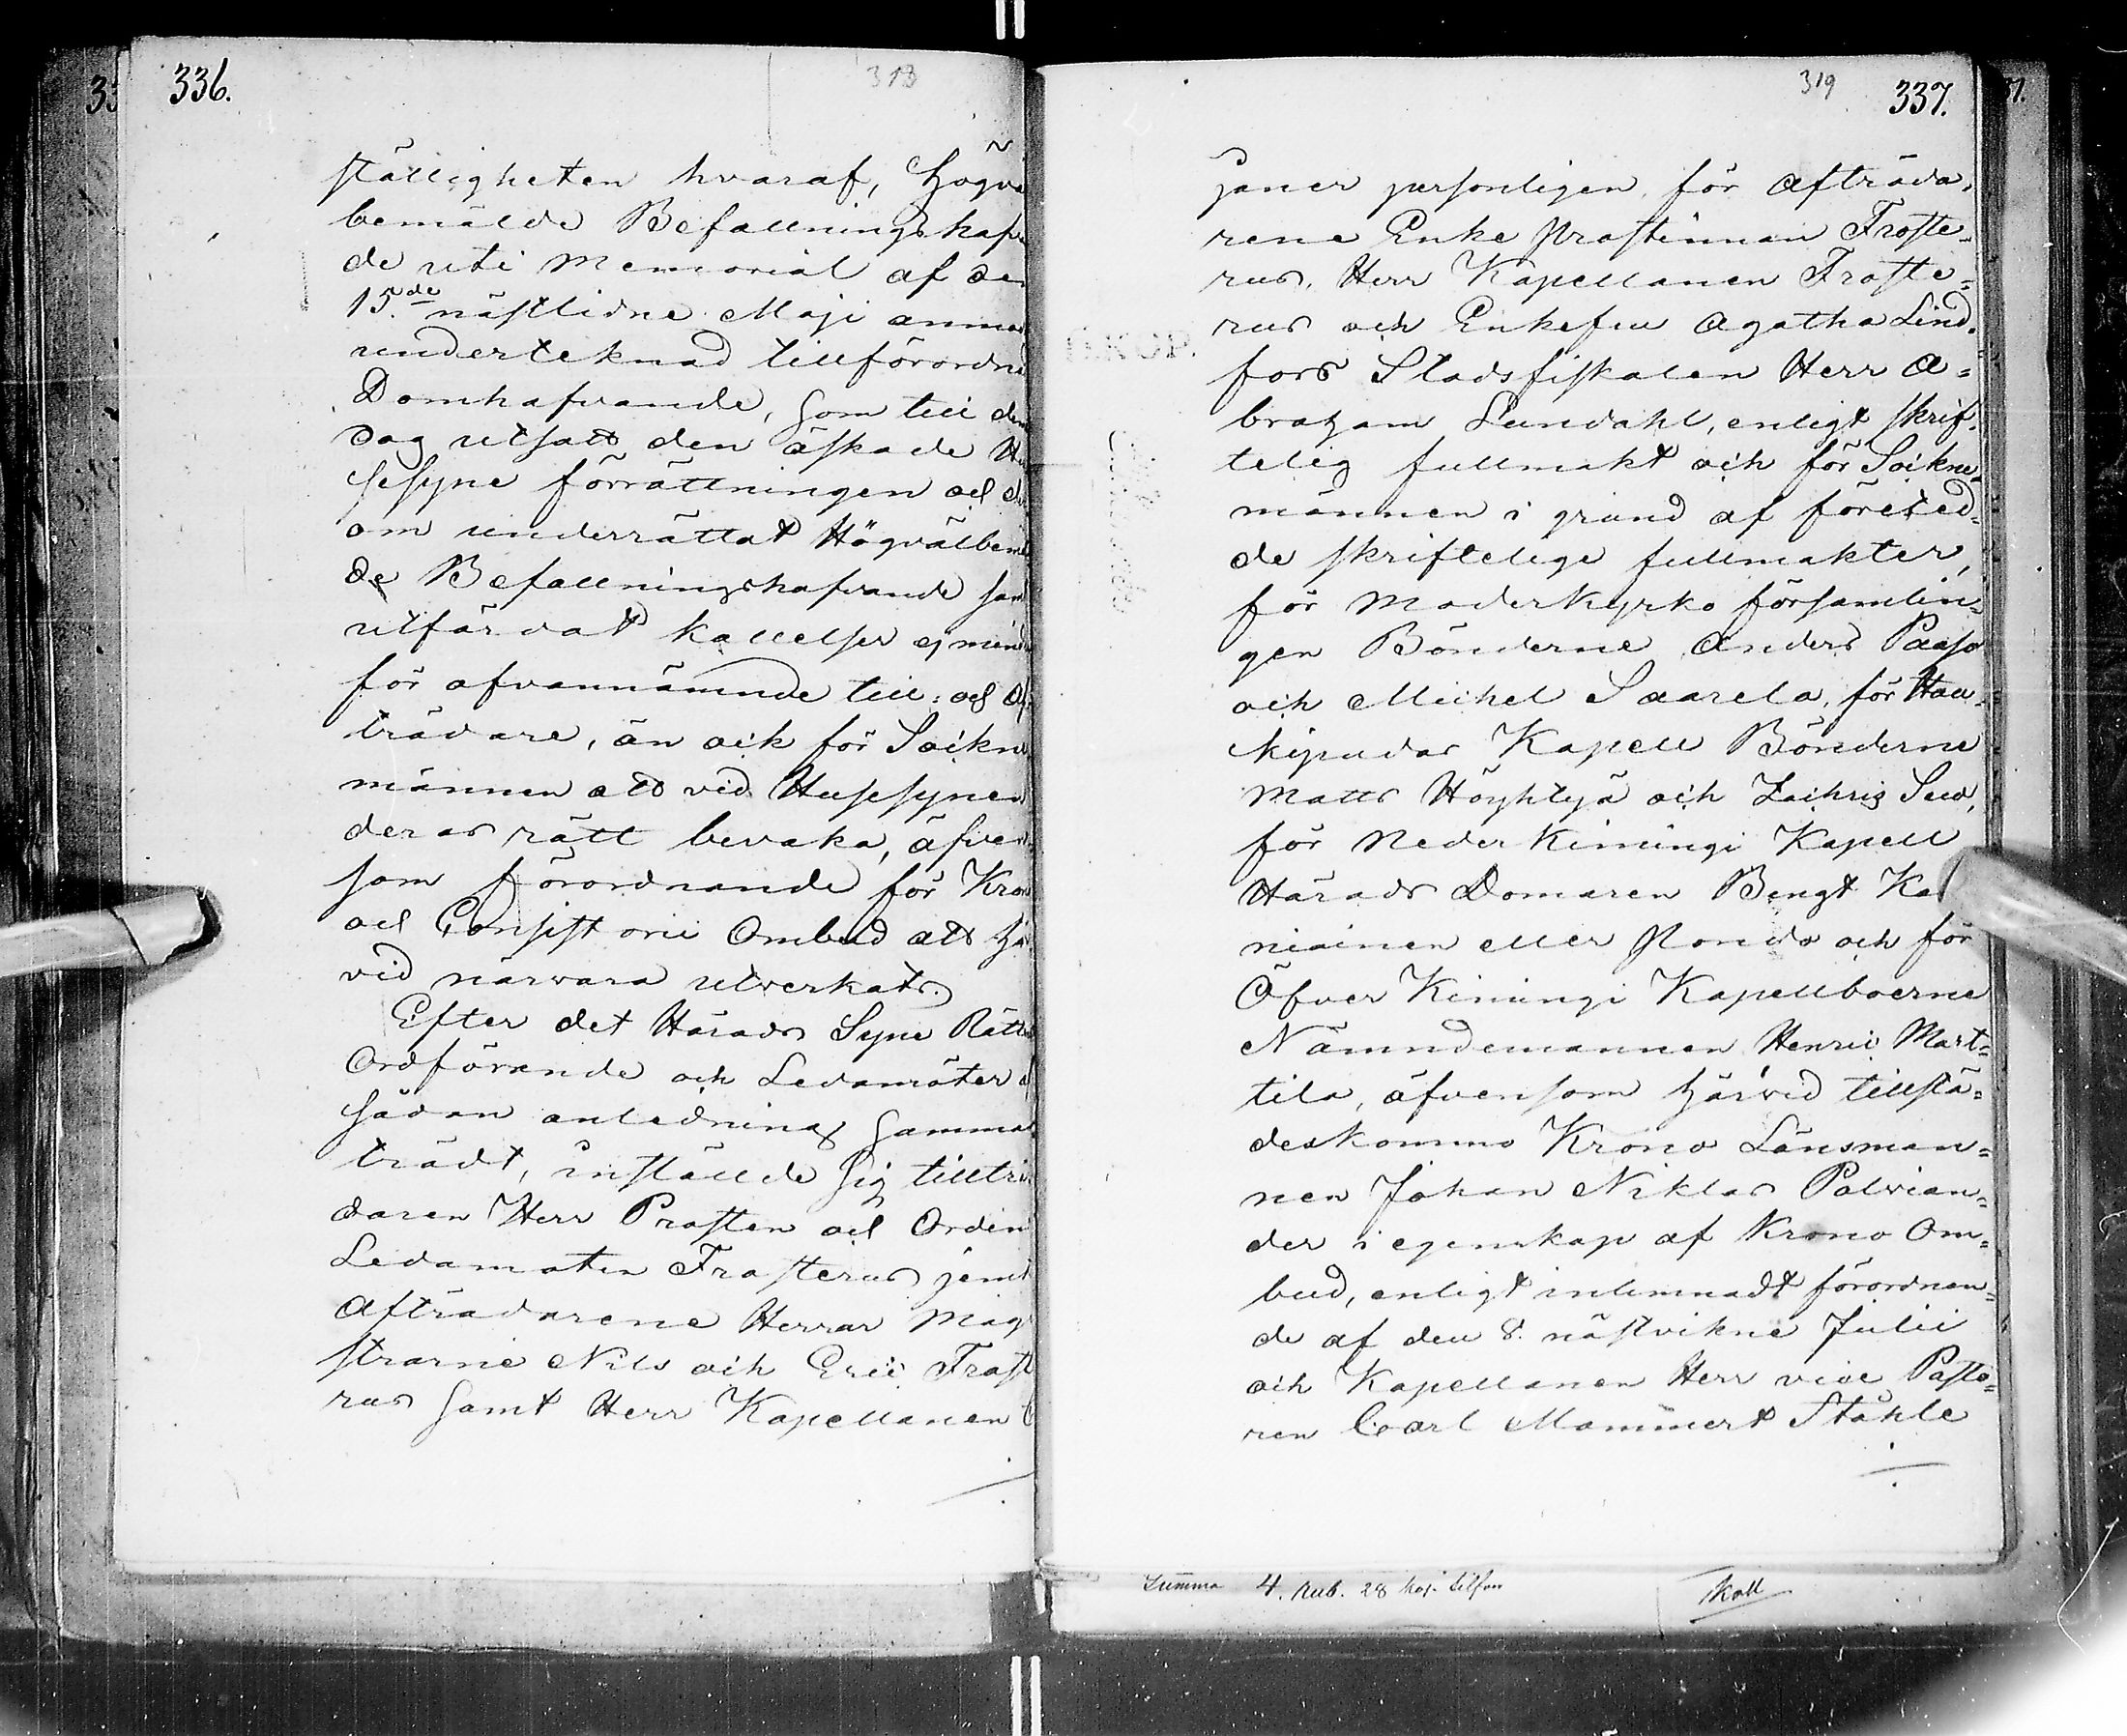 336.
313
ställigheten hvaraf, högvä
bemälde Befallningshafv
de uti Memorial af de
15.de nästlidne Maji anmo
undertecknad tillförordna
Domhafvande, som till den
dag utsatt den äskade Hu
sesyne förrättningen och der
om underrättat Högvälbem
de Befallningshafvande sam
utfärdat kallelser ej mind
för ofvannämnde till- och Af
trädare, än ock för Sockne
männen att vid Husesynen
deras rätt bevaka, äfven
som förordnande för Kron
och Consistorii Ombud att hä
vid närvara utverkats.
Efter det Härads Syne Rätt
Ordförande och Ledamöter af
sådan anledning samman
trädt, inställde sig tillträ
daren Herr Prosten och Ordens
Ledamoten Frosterus jemt
Afträdarene Herrar Mag
strarne Nils och Eric Frost
rus samt Herr Kapellanen
319
337.
janer personligen, för afträda-
rene Enke Prostinnan Froste-
rus, Herr Kapellanen Froste-
rus och Enkefru Agatha Lind-
fors Stadsfiskalen Herr A-
braham Lundahl, enligt skrif-
telig fullmakt och för Sockne-
männen i grund af företed-
de skriftelige fullmakter,
för Moderkyrko församlin-
gen Bönderne Anders Paaso
och Michel Saarela, för Hau-
kipudas Kapell Bönderne
Matts Höyhtyä och Zachris Suo,
för Neder Kiimingi Kapell
Härads Domaren Bengt Ka
niainen eller Ronda och för
Öfver Kimingi Kapellboerne
Nämndemannen Henric Mart-
tila, äfvensom härvid tillstä-
deskommo Krono Länsman-
nen Johan Niklas Palvian-
der i egenskap af Krono Om-
bud, enligt inlemnadt förordnan-
de af den 8. nästvikne Julii
och Kapellanen Herr vice Pasto-
ren Carl Mammert Ståhle
Summa 4. Rub. 28 kop. Silfver